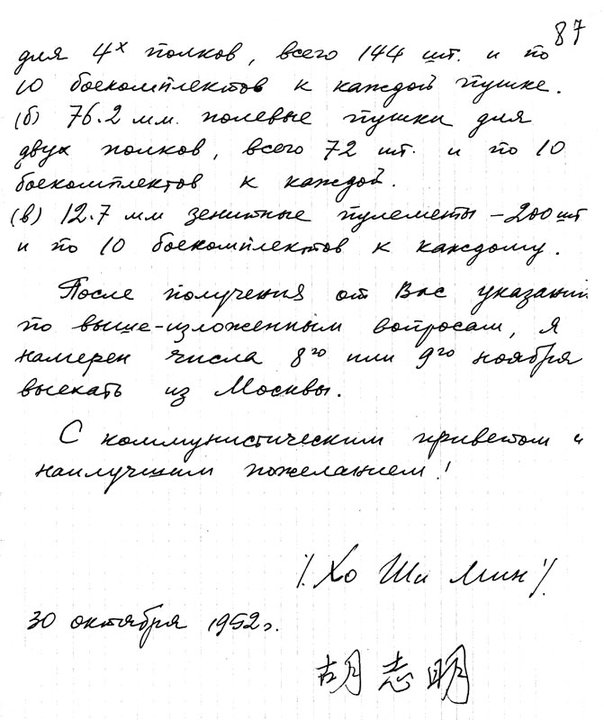 87
для 4х полков, всего 144 шт. и по
10 боекомплектов к каждой пушке.
(б) 76.2 мм. полевые пушки для
двух полков, всего 72 шт. и по 10
боекомплектов к каждой.
(в) 12.7 мм зенитные пулеметы – 200 шт
и по 10 боекомплектов к каждому.
После получения от Вас указаний
по выше-изложенным вопросам, я
намерен числа 8го или 9го ноября
выехать из Москвы.
С коммунистическим приветом и
наилучшим пожеланием!
/. Хо Ши Мин /.
30 октября 1952г.
胡志明